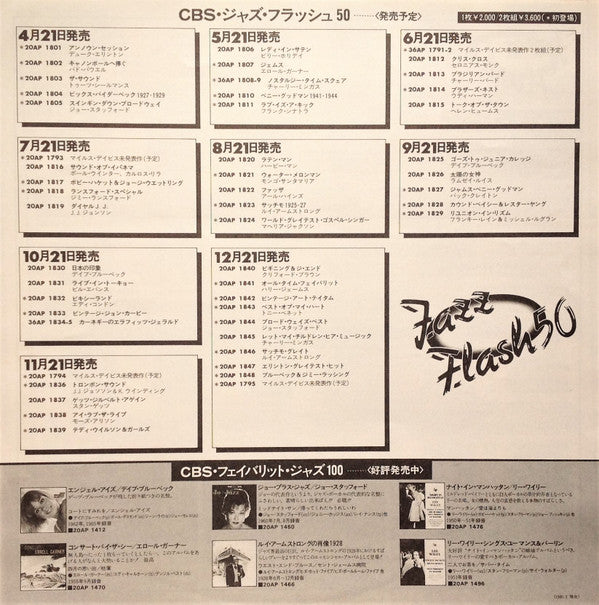 CBS・ジャズ・フラッシュ50……〈発売予定〉
1枚¥2.000 2枚組¥3,600 (•初登場)
4月21日発売
•20AP 1801 アンノウン・セッション
デューク・エリントン
•20AP 1802 キャノンボールへ捧ぐ
バド・パウエル
•20AP 1803 ザ・サウンド
トゥーツ・シールマンス
•20AP 1804 ビックス・バイダーベック1927-1929
•20AP 1805 スインギン・ダウン・ブロードウェイ
ジョー・スタッフォード
5月21日発売
20AP 1806 レディ・イン・サテン
ビリー・ホリデイ
20AP 1807 ジェムス
エロール・ガーナー
36AP 1808-9 ノスタルジー・タイム・スクェア
チャーリー・ミンガス
•20AP 1810 ベニー・グッドマン1941-1944
•20AP 1811 ラブ・イズ・ア・キック
フランク・シナトラ
6月21日発売
•36AP 1791-2 マイルス・デイビス未発表作2枚組(予定)
20AP 1812 クリス・クロス
セロニアス・モンク
•20AP 1813 ブラジリアン・バード
チャーリー・バード
•20AP 1814 ブラザーズ・ネスト
ウディ・ハーマン
•20AP 1815 トーク・オブ・ザ・タウン
ヘレン・ヒュームス
7月21日発売
•20AP 1793 マイルス・デイビス未発表作(予定)
20AP 1816 サウンド・オブ・イパネマ
ポール・ウインター、カルロス・リラ
•20AP 1817 ボビー・ハケット&ジョージ・ウェットリング
•20AP 1818 ランスフォード・スペシャル
ジミー・ランスフォード
20AP 1819 ダイヤルJ.J.
J.J.ジョンソン
8月21日発売
•20AP 1820 ラテン・マン
ハービー・マン
•20AP 1821 ウォーター・メロンマン
モンゴ・サンタマリア
•20AP 1822 ファッザ
アール・ハインズ
•20AP 1823 サッチモ1925-27
ルイ・アームストロング
•20AP 1824 ワールド・グレイテスト・ゴスペル・シンガー
マヘリア・ジャクソン
9月21日発売
20AP 1825 ゴーズ・トゥ・ジュニア・カレッジ
デイブ・ブルーベック
20AP 1826 太陽の女神
ラムゼイ・ルイス
•20AP 1827 ジャムス・ベニー・グッドマン
バック・クレイトン
•20AP 1828 カウント・ベイシー&レスター・ヤング
•20AP 1829 リユニオン・イン・リズム
フランキー・レイン&ミッシェル・ルグラン
10月21日発売
20AP 1830 日本の印象
デイブ・ブルーベック
20AP 1831 ライブ・イン・トーキョー
ビル・エバンス
•20AP 1832 ビキシーランド
エディ・コンドン
•20AP 1833 ビンテージ・ジョン・カービー
36AP 1834-5 カーネギーのエラ・フィッツ・ジェラルド
11月21日発売
•20AP 1794 マイルス・デイビス未発表作(予定)
•20AP 1836 トロンボン・サウンド
J.J.ジョンソン&K.ウインディング
20AP 1837 ゲッツ・ジルベルト・アゲイン
スタン・ゲッツ
•20AP 1838 アイ・ラブ・ザ・ライブ
モーズ・アリソン
•20AP 1839 テディ・ウイルソン&ガールズ
12月21日発売
20AP 1840 ビギニング&ジ・エンド
クリフォード・ブラウン
•20AP 1841 オール・タイム・フェイバリット
ハリー・ジェームス
•20AP 1842 ビンテージ・アート・テイタム
•20AP 1843 ベスト・オブ・マイ・ハート
トニー・ベネット
•20AP 1844 ブロード・ウェイズ・ベスト
ジョー・スタッフォード
20AP 1845 レット・マイ・チルドレン・ヒア・ミュージック
チャーリー・ミンガス
•20AP 1846 サッチモ・グレイト
ルイ・アームストロング
•20AP 1847 エリントン・グレイテスト・ヒット
•20AP 1848 ブルーベック&ジミー・ラッシング
•20AP 1795 マイルス・デイビス未発表作(予定)
Jazz
Flash 50
CBS・フェイバリット・ジャズ100……〈好評発売中〉
エンジェル・アイズ/デイブ・ブルーベック
■20AP 1412
ジョー・プラス・ジャズ/ジョー・スタッフォード
■20AP 1450
ナイト・イン・マンハッタン/リー・ワイリー
■20AP 1476
コンサート・バイ・ザ・シー/エロール・ガーナー
■20AP 1470
ルイ・アームストロングの肖像1928
■20AP 1466
リー・ワイリー・シングス・ユーマンス&バーリン
■20AP 1496